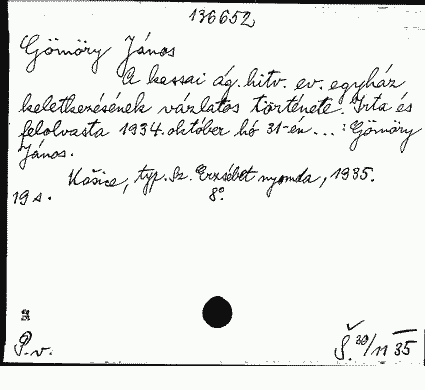 136652
Gömöry János
A kassai ág. hitv. ev. egyház
keletkezésének vázlatos története. Irta és
felolvasta 1934. október hó 31-én ... : Gömöry
János.
Košice, typ. Sz. Erzsébet nyomda, 1935.
19 s. 8°
P. v.
Š. 29/11 35